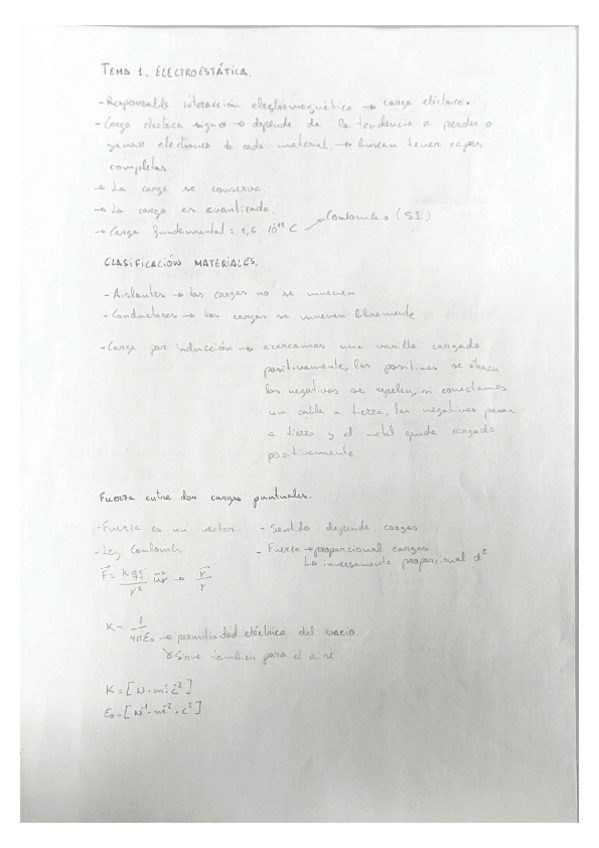 TEMA 1. ELECTROESTÁTICA.
- Responsable interaccion electromagnética → carga eléctrica.
- Carga electrica signo → depende de la tendencia a perder o
ganar electrones de cada material, → buscan tener capas
completas
→ La carga se conserva.
→ La carga es cuantizada.
→ Carga fundamental = 1,6 · C → Coulombio (SI)
CLASIFICACIÓN MATERIALES.
- Aislantes → las cargas no se mueven
- Conductores → las cargas se mueven libremente
- Carga por inducción → acercamos una varilla cargada
positivamente, las positivas se
las negativas se repelen, si conectamos
un cable a tierra, las negativas pasan
a tierra y el metal queda cargado
positivamente.
Fuerza entre dos cargas puntuales.
- Fuerza es un vector - Sentido depende cargas
- Ley Coulomb - Fuerza → proporcional cargas
↳ inversamente proporcional d²
F = k q q' / r² ur → r / r
K = 1 / 4πε₀ → permitividad eléctrica del vacio
↘ Sirve tambien para el aire
K = [N · m² · c⁻²]
ε₀ = [N⁻¹ · m⁻² · c²]